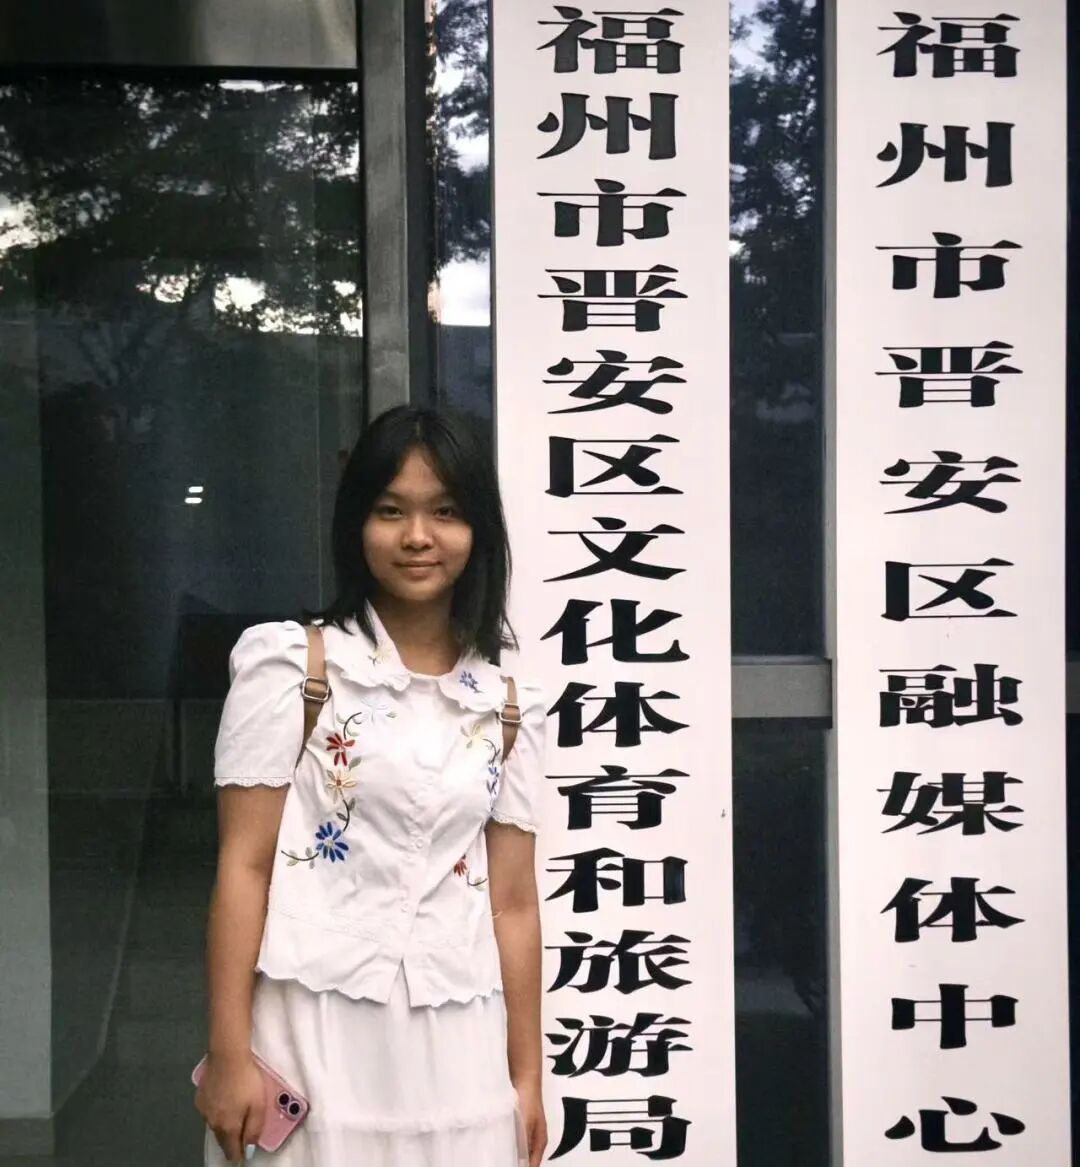 福州市晋安区文化体育和旅游局
福州市晋安区融媒体中心